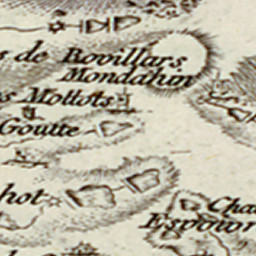 s de Rovillars
Mondahin
s Mollots
Goutte
hot
Cha
Espour